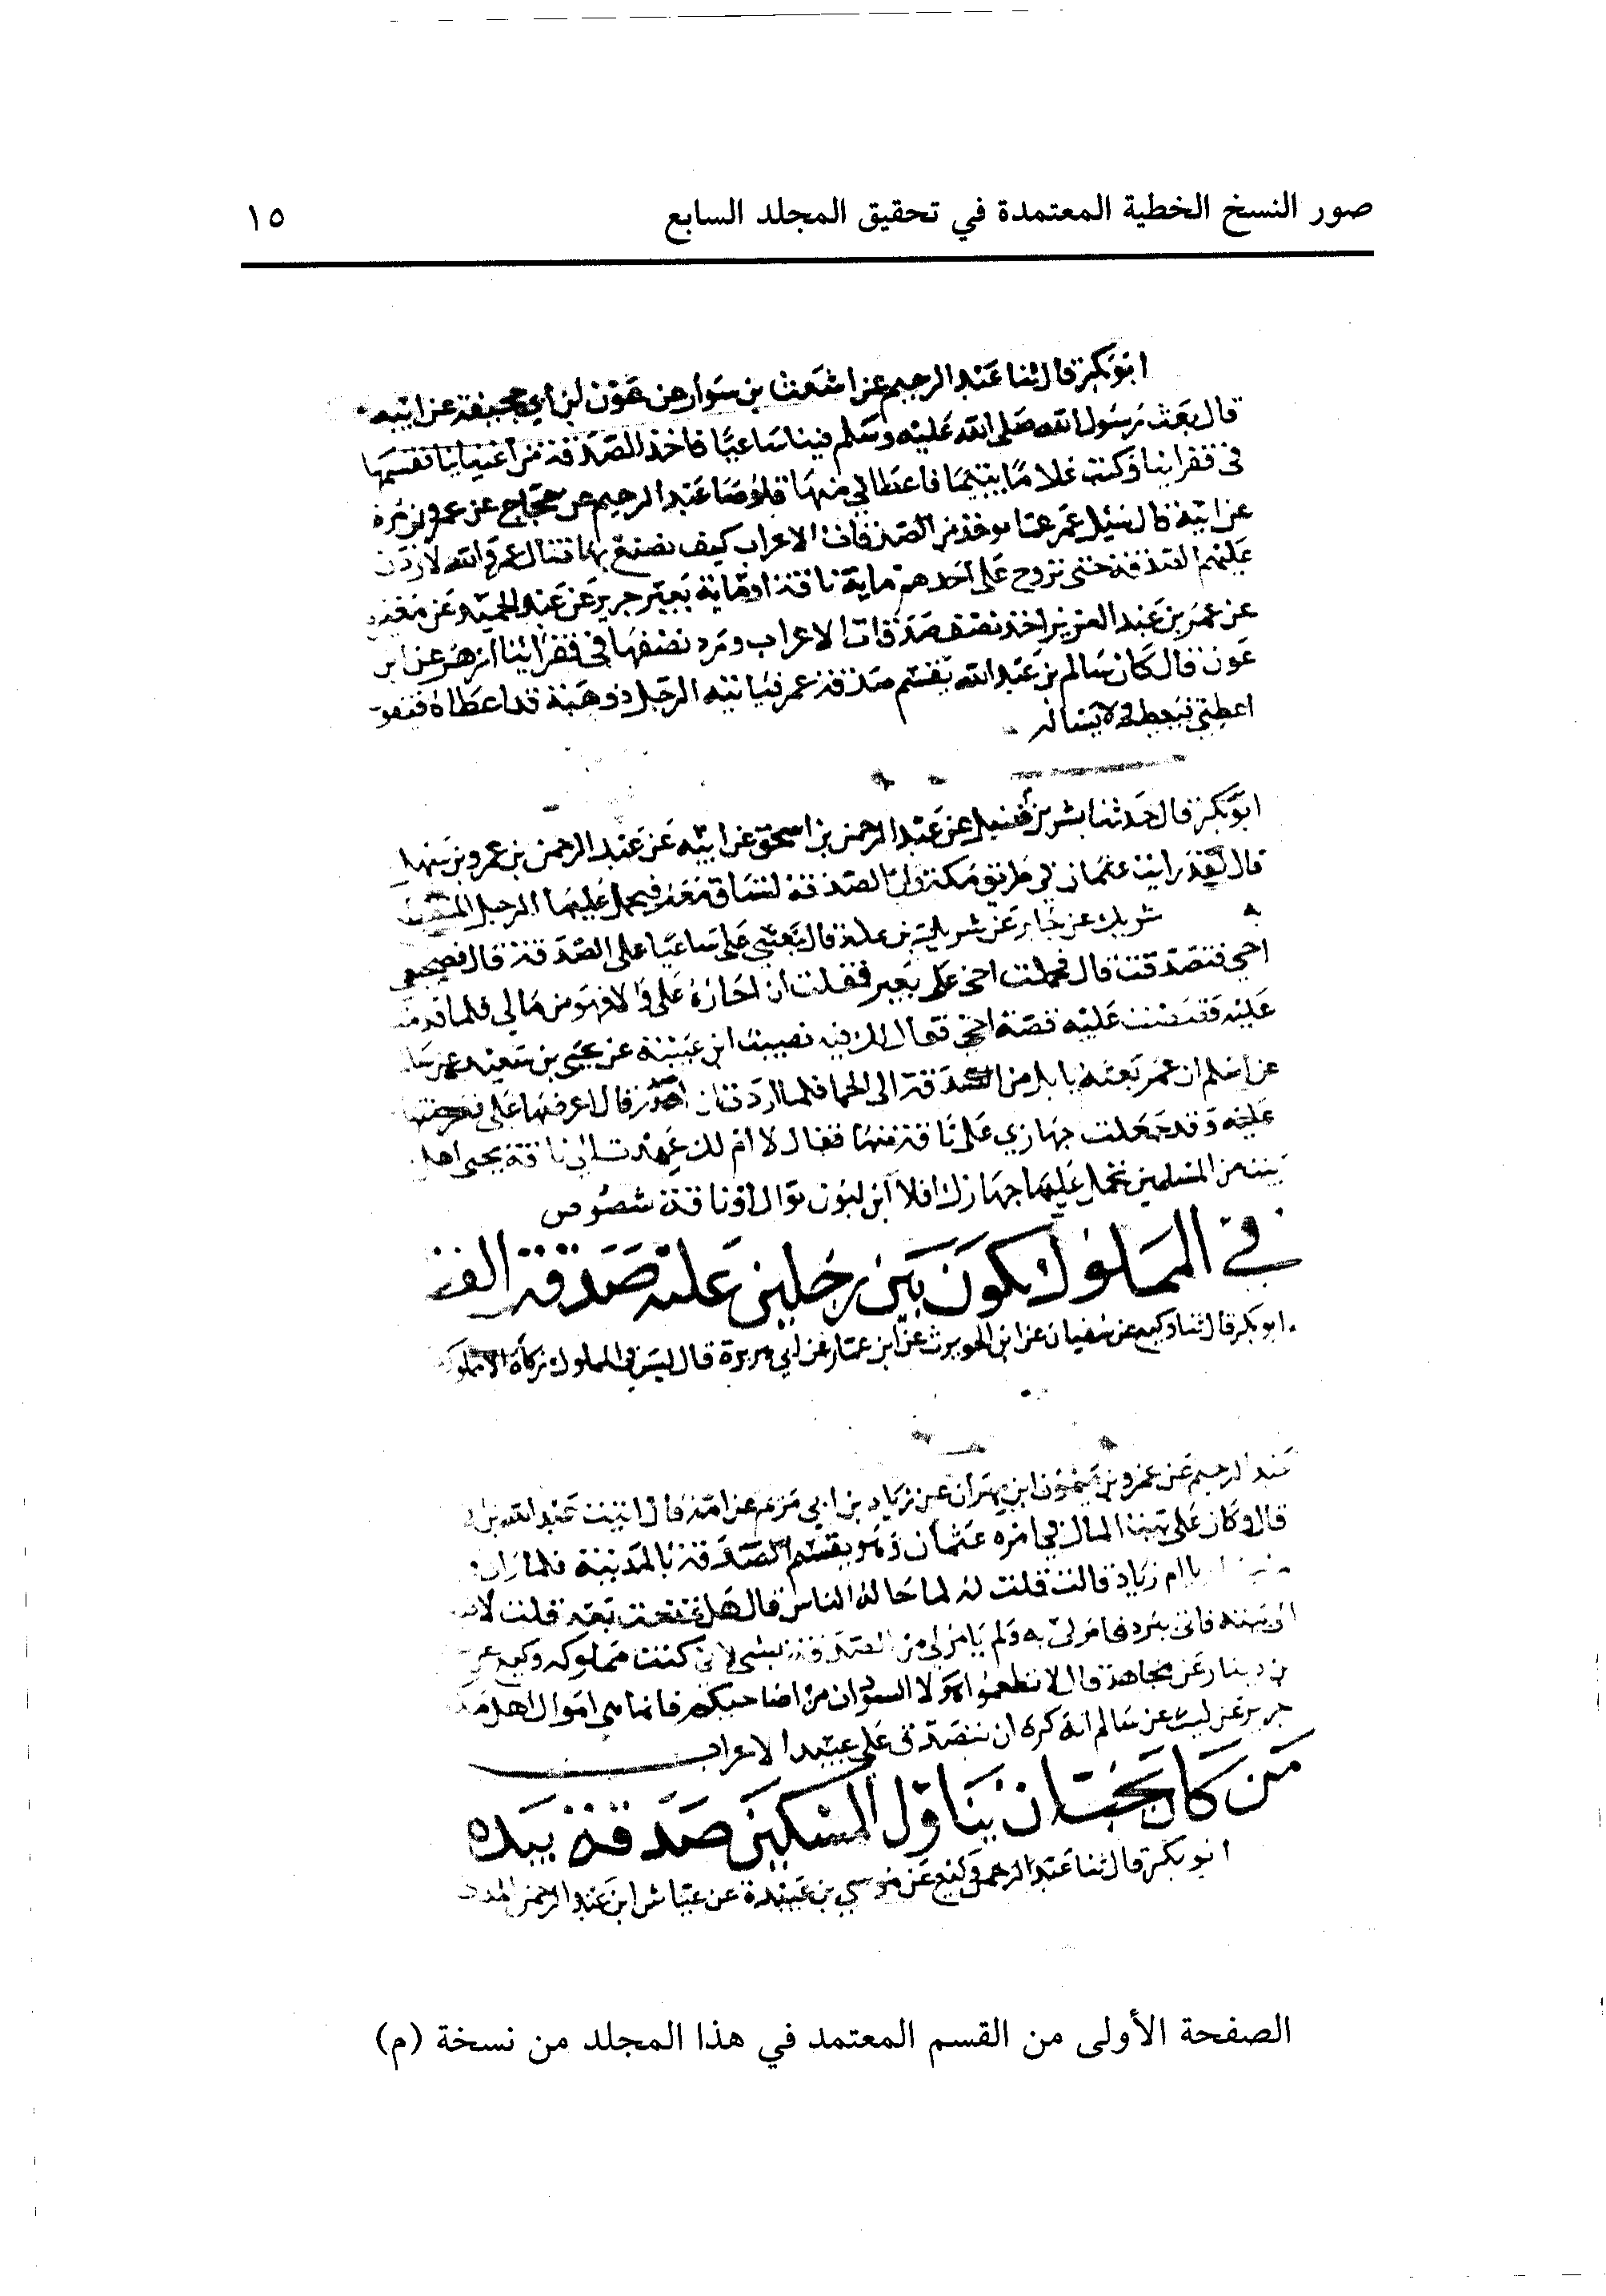 صور النسخ الخطية المعتمدة في تحقيق المجلد السابع ١٥
ابو بكر قال ثنا عبد الرحيم عن اشعث بن سوار عن عون بن أبي جحيفة عن ابيه
قال بعث رسول الله صلى الله عليه وسلم فينا ساعيا فاخذ الصدقة من أغنيائنا فقسمها
في فقرائنا وكنت غلاما يتيما فاعطاني منها قلوصا عبد الرحيم عن حجاج عن عمرو بن مرة
عن ابيه قال سئل عمر عما يوخذ من الصدقات الاعراب كيف نصنع بها فقال عمر والله لاردن
عليهم الصدقة حتى تروح على احدهم ماية ناقة او ماية بعير جرير عن عبد الحميد عن مغيرة
عن عمر بن عبد العزيز اخذ نصف صدقات الاعراب ورد نصفها في فقرائنا ازهر عن ابن
عون قال كان سالم بن عبد الله يقسم صدقة عمر فياتيه الرجل ذو هيبة قد اعطاه فيقول
اعطني فيعطه ولا يساله
ابو بكر قال حدثنا بشر بن عن عبد الرحمن بن اسحق عن ابيه عن عبد الرحمن بن عمرو بن سهل
قال لقد رايت عثمان في طريق مكة وان الصدقة لتساق معه فيحمل عليها الرجل
شريك عن جابر عن شريك بن قال بعثني علي ساعيا على الصدقة قال فصحبني
اخي فتصدقت قال فحملت اخي على بعير فقلت ان اجازه علي والا فهو من مالي فلما قدمت
عليه قصصت عليه قصة اخي فقال لك فيه نصيب ابن عيينة عن يحيى بن سعيد عن
عن اسلم ان عمر بعثه بابل من الصدقة الى الحما فلما اردت ان اصدر قال اعرضها علي فعرضتها
عليه وقد جعلت جهازي على ناقة منها فقال لا ام لك عمدت الى ناقة يحيى اهل
بيت من المسلمين تحمل عليها جهازك افلا ابن لبون بوال او ناقة شصوص
في المملوك يكون بين رجلين عليه صدقة الفطر
ابو بكر قال ثنا وكيع عن سفيان عن ابن الحويرث عن ابن عمار عن ابي هريرة قال ليس في المملوك زكاة الا مملوك
عبد الرحيم عن عمرو بن ميمون ابن مهران عن زياد بن ابي مريم عن امه قال اتيت عبد الله بن
قال وكان على بيت المال في امره عثمان وهو يقسم الصدقة بالمدينة فلما راني
يا ام زياد قالت قلت له لما جا له الناس قال هل عتقت بعد قلت لا
الى بيته فاتى ببرد فامر لي به ولم يامر لي من الصدقة بشي لاني كنت مملوكه وكيع عن
بن دينار عن مجاهد قال لا تطعموا هولا السودان من اضاحيكم فانما هي اموال اهل
جرير عن ليث عن سالم انه كره ان يتصدق على عبيد الاعراب
من كان يحب ان يناول المسكين صدقة بيده
ابو بكر قال ثنا وكيع عن موسى بن عبيدة عن عباس ابن عبد الرحمن
الصفحة الأولى من القسم المعتمد في هذا المجلد من نسخة (م)